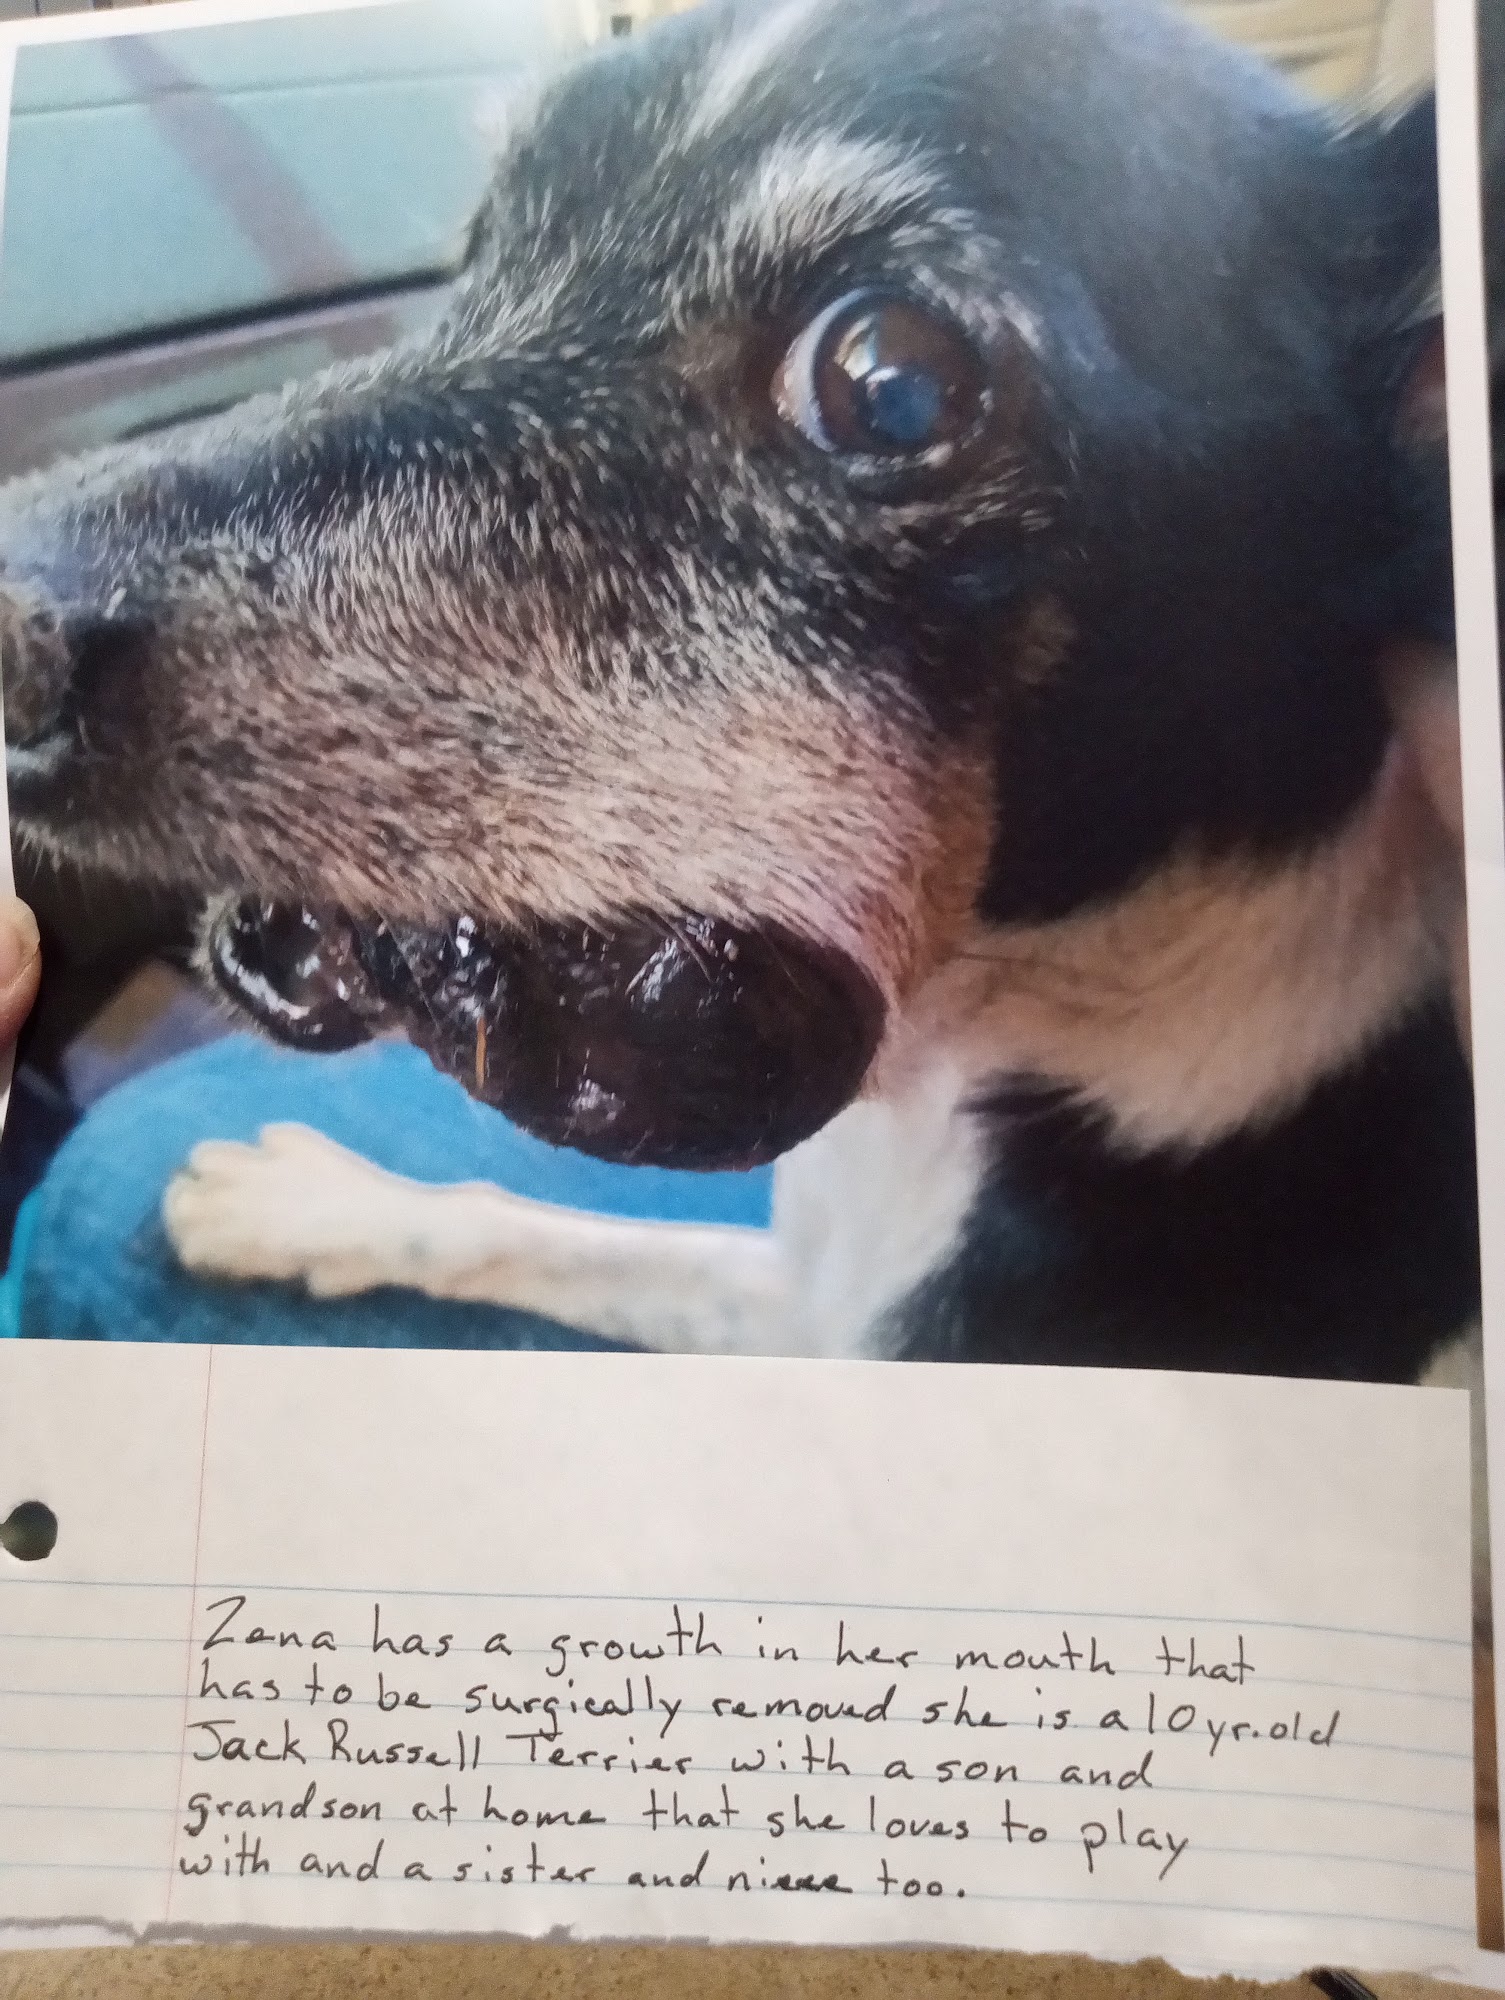 Zena has a growth in her mouth that
has to be surgically removed she is a 10 yr. old
Jack Russell Terrier with a son and
grandson at home that she loves to play
with and a sister and niece too.